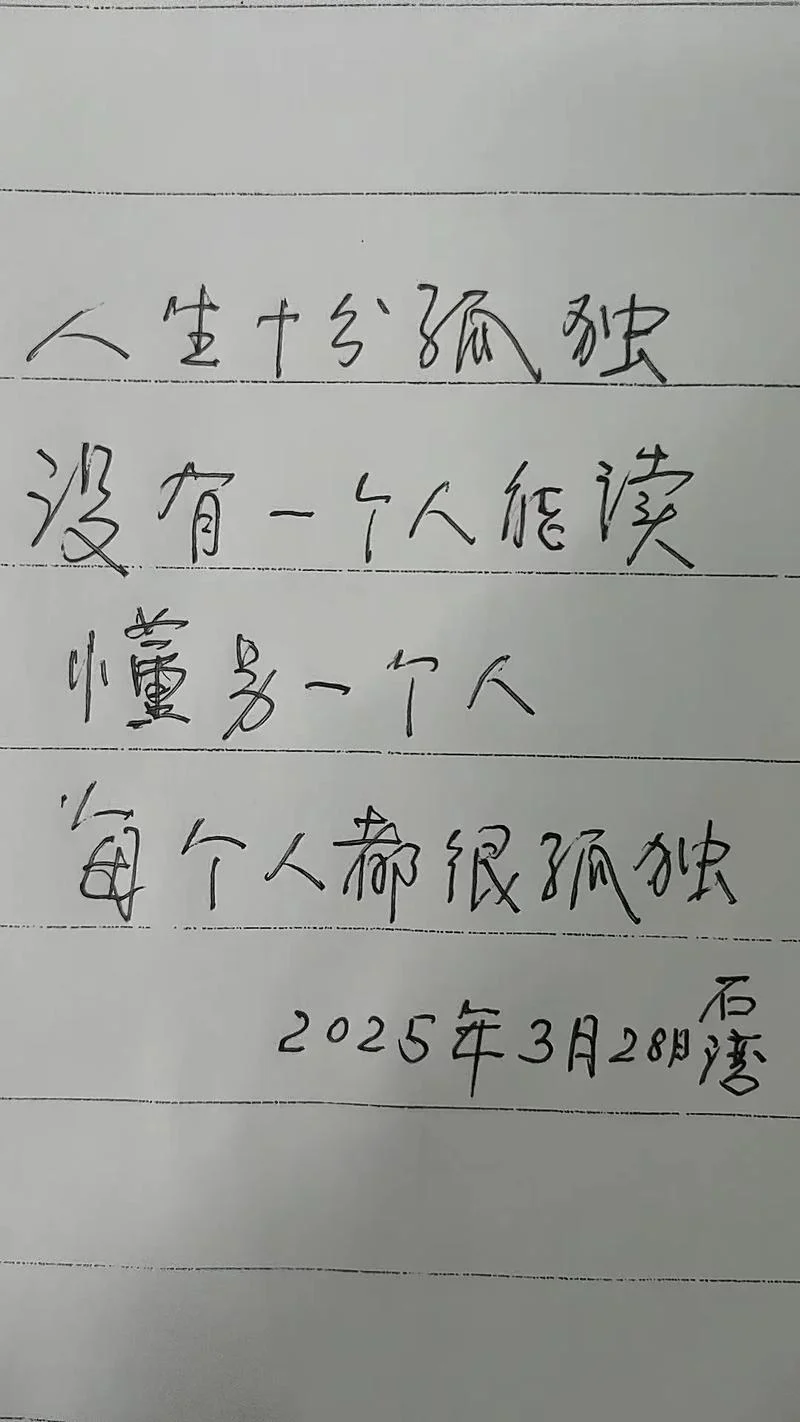 人生十分孤独
没有一个人能读
懂另一个人
每个人都很孤独
2025年3月28日
石湾